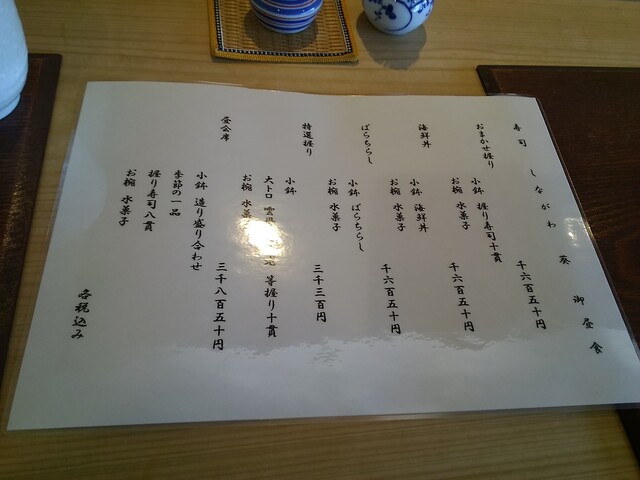 寿司 しながわ 葵 御昼食
おまかせ握り 千六百五十円
小鉢 握り寿司十貫
お椀 水菓子
海鮮丼 千六百五十円
小鉢 海鮮丼
お椀 水菓子
ばらちらし 千六百五十円
小鉢 ばらちらし
お椀 水菓子
特選握り 三千三百円
小鉢
大トロ 雲 等握り十貫
お椀 水菓
昼会席 三千八百五十円
小鉢 造り盛り合わせ
季節の一品
握り寿司八貫
お椀 水菓子
各税込み